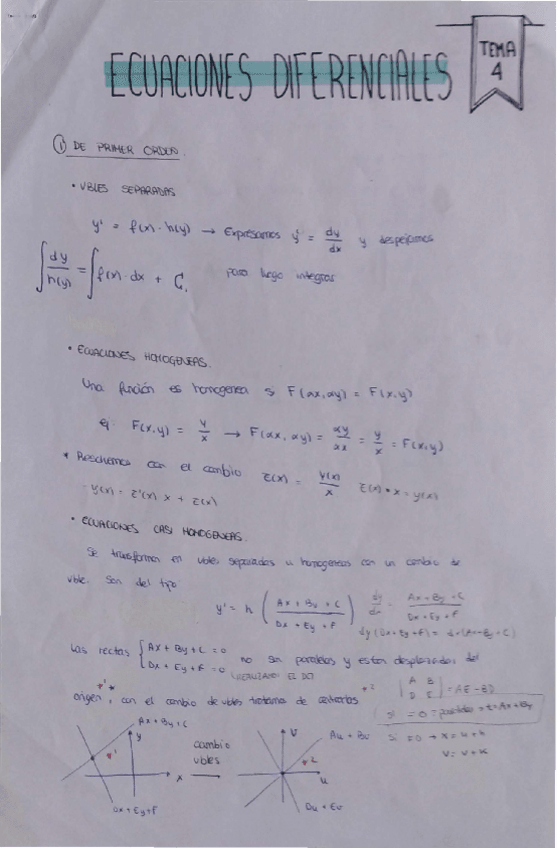 TEMA
4
ECUACIONES DIFERENCIALES
① DE PRIMER ORDEN.
• VBLES SEPARADAS
y' = f(x) · h(y) → Expresamos y' = dy/dx y despejamos
∫ dy/h(y) = ∫ f(x) · dx + C, para luego integrar
• ECUACIONES HOMOGENEAS.
Una función es homogenea si F(αx, αy) = F(x,y)
ej: F(x,y) = y/x → F(αx, αy) = αy/αx = y/x = F(x,y)
* Resolvemos con el cambio z(x) = y(x)/x z(x) • x = y(x)
- y'(x) = z'(x) x + z(x)
• ECUACIONES CASI HOMOGENEAS.
Se transforman en vbles separadas u homogeneas con un cambio de
vble. Son del tipo
y' = h (Ax + By + C / Dx + Ey + F) dy/dx = Ax + By + C / Dx + Ey + F
dy (Dx + Ey + F) = dx (Ax + By + C)
Las rectas { Ax + By + C = 0
Dx + Ey + F = 0 no son paralelas y estan desplazadas del
origen, con el cambio de vbles tratamos de centrarlas
|A B|
|D E| = AE - BD
si = 0 → paralelas → z = Ax + By
si ≠0 →
Ax + By + C
y
x
Dx + Ey + F
cambio
vbles
v
Au + Bv
u
Du + Ev